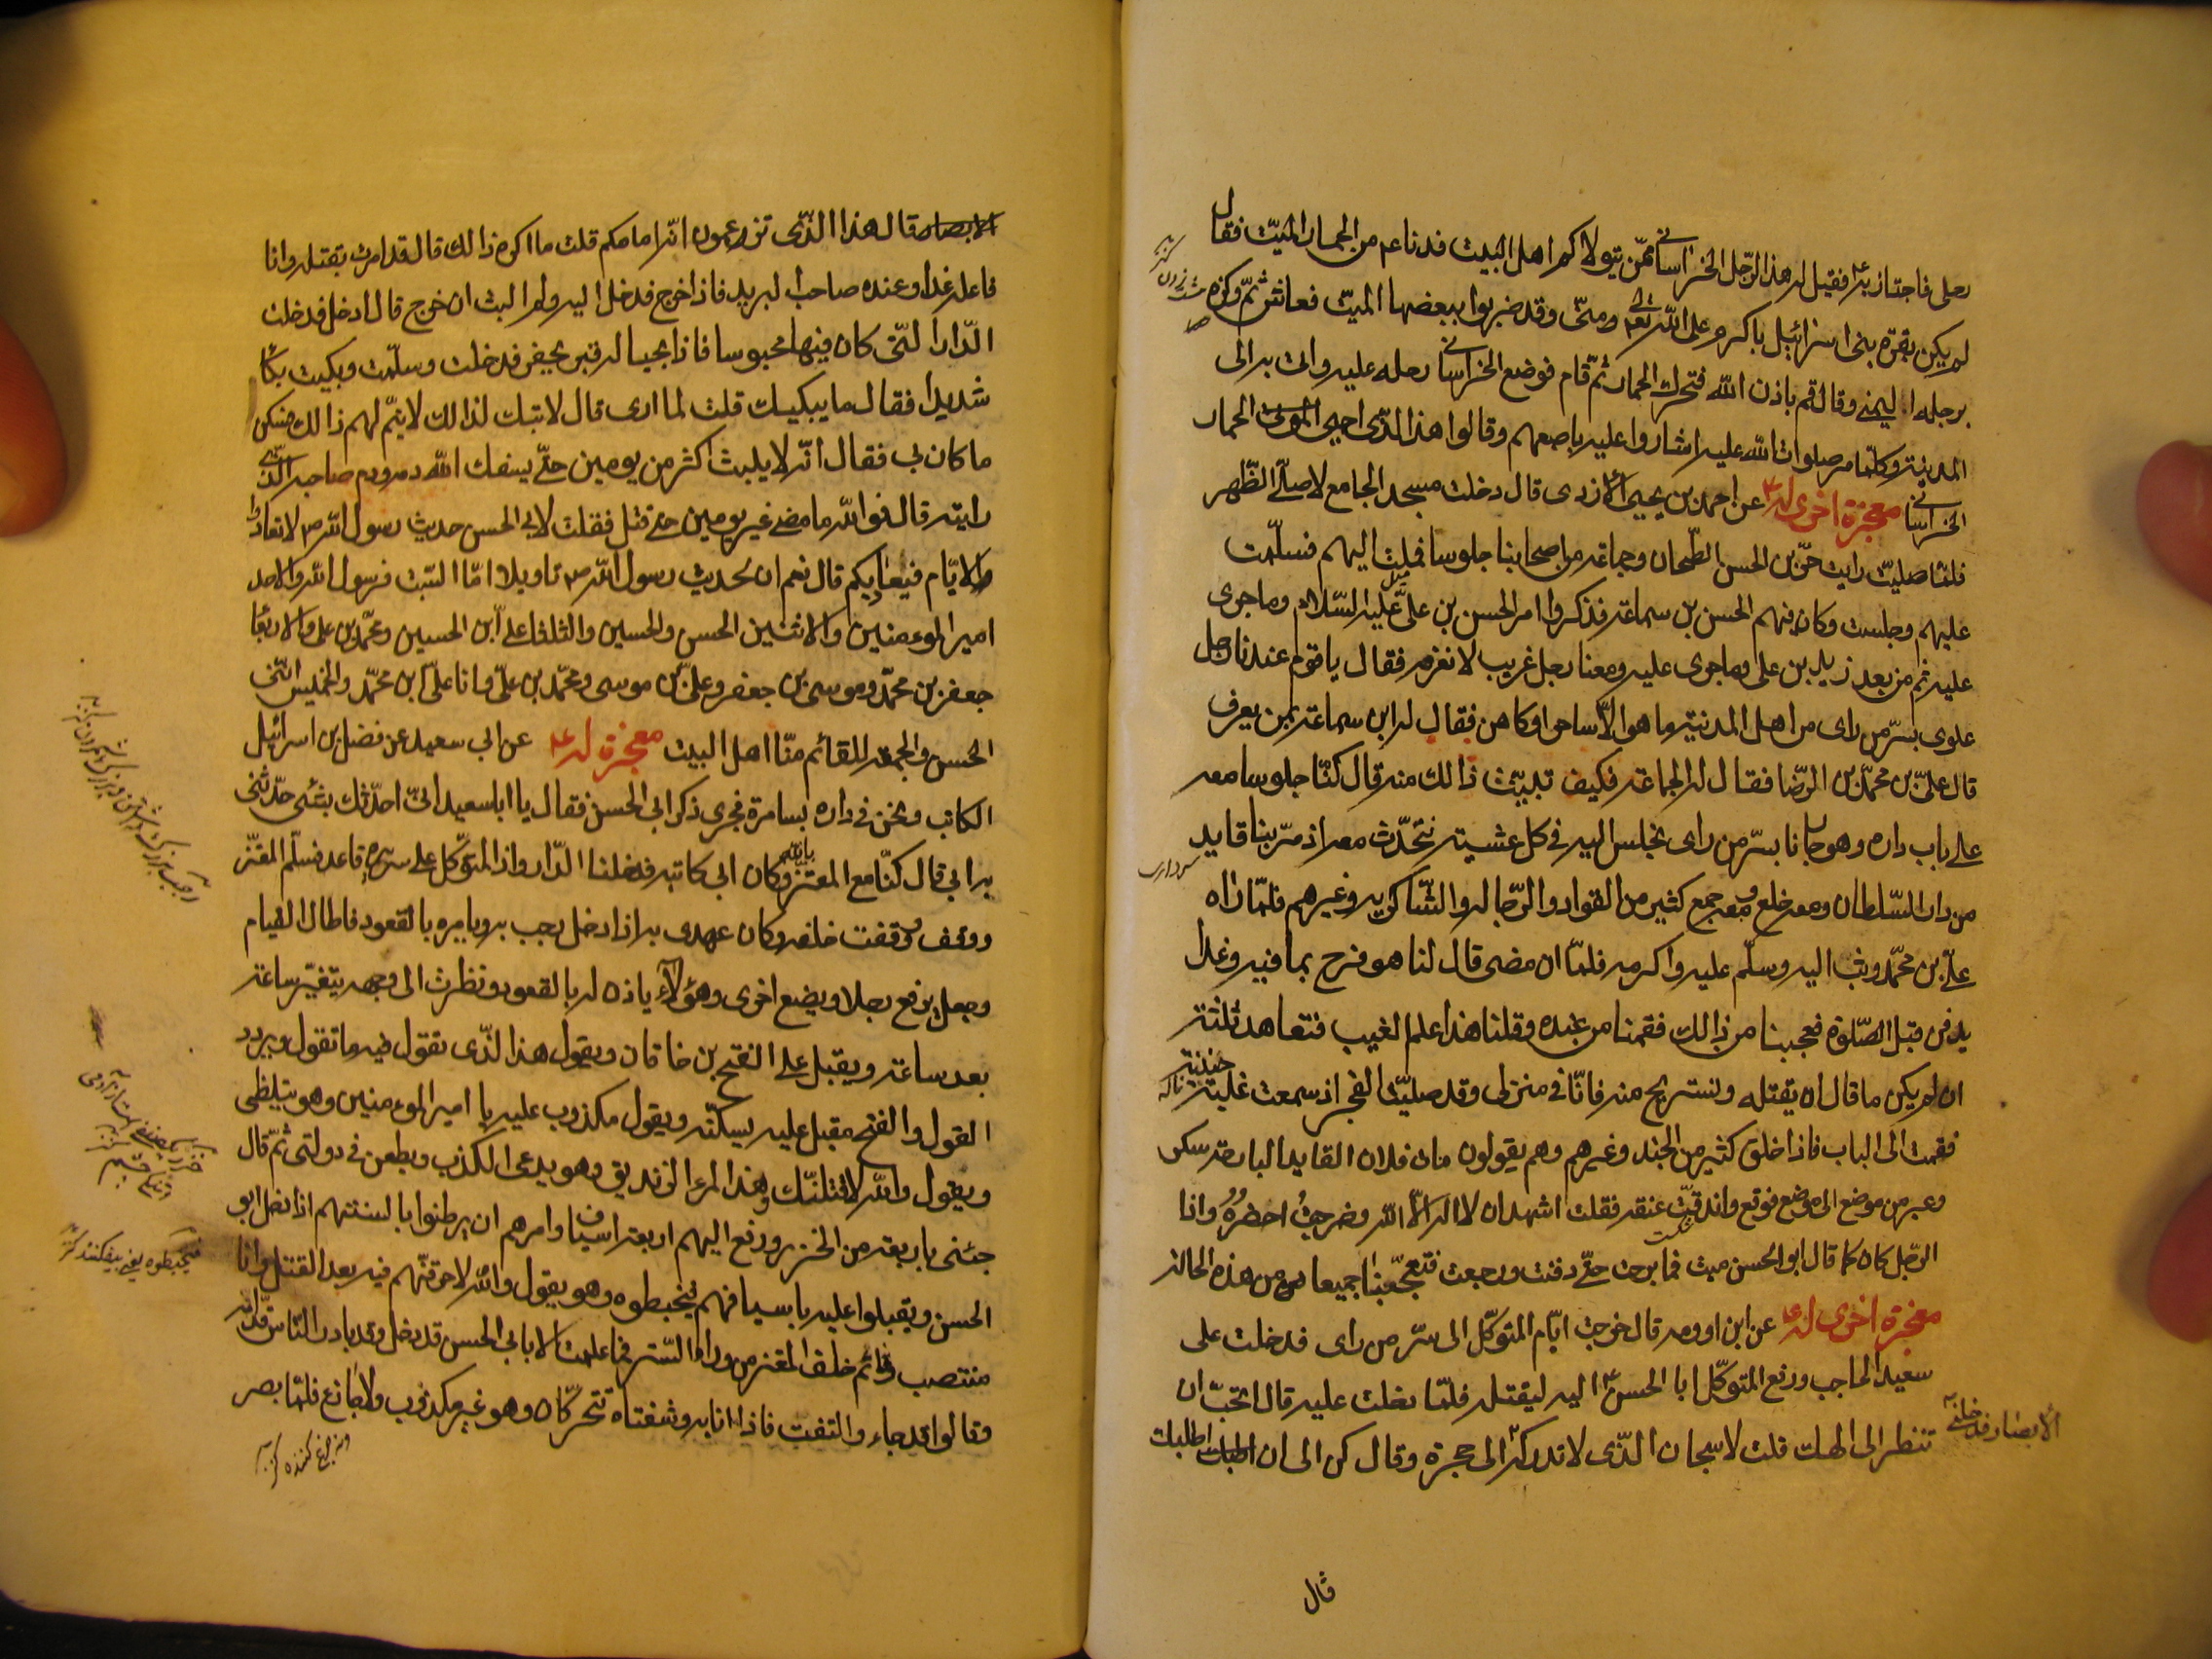 رحلى فاجتاز به ع فقيل له هذا الرّجل الخراسانى ممّن يتولاكم اهل البيت فدنا ع من الحمار الميّت فقال
لم يكن بقرة بنى اسرائيل باكرم على اللّه تعالى منّى وقد ضربوا ببعضها الميّت فعاش ثمّ وكزه
برجله اليمنى وقال قم باذن اللّه فتحرك الحمار ثمّ قام فوضع الخراسانى رحله عليه واتى به الى
المدينة وكلّما مر صلوات اللّه عليه اشاروا عليه باصبعهم وقالوا هذا الذّى احيى الموتى الحمار
الخراسانى معجزة اخرى له ع عن احمد بن يحيى الازدى قال دخلت مسجد الجامع لاصلّى الظّهر
فلمّا صليّت رايت حرّ بن الحسن الطّحان وجماعة من اصحابنا جلوسا فملت اليهم فسلّمت
عليهم وجلست وكان فيهم الحسن بن سماعة فذكروا امر الحسن بن علىّ عليه السّلام وما جرى
عليه ثم من بعد زيد بن على وما جرى عليه ومعنا رجل غريب لا نعرفه فقال يا قوم عندنا رجل
علوى بسرّ من راى من اهل المدنية ما هو الّا ساحر او كاهن فقال له ابن سماعة بمن يعرف
قال علىّ بن محمّد بن الرّضا فقال له الجماعة فكيف تبيّنت ذالك منه قال كنّا جلوسا معه
على باب داره وهو جارنا بسرّ من راى نجلس اليه فى كل عشية نتحدّث معه اذ مرّ بنا قايد
من دار السّلطان ومعه خلع ومعه جمع كثير من القواد والرّجالة والشّاكرية وغيرهم فلمّا راه
علىّ بن محمّد وثب اليه وسلّم عليه واكرمه فلمّا ان مضى قال لنا هو فرح بما فيه وغدا
يدفن قبل الصّلوة فعجبنا من ذالك فقمنا من عنده وقلنا هذا علم الغيب فتعاهد ثلثة
ان لم يكن ما قال ان يقتله ونستريح منه فانّا فى منزلى وقد صليّت الفجر اذ سمعت غلبة
فقمت الى الباب فاذا خلق كثير من الجند وغيرهم وهم يقولون مات فلان القايد البارحة سكر
وعبر من موضع الى موضع فوقع واندقّت عنقه فقلت اشهد ان لا اله الّا اللّه وخرجت احضره واذا
الرّجل كان كما قال ابو الحسن ميت فما برحت حتّى دفنت ورجعت فتعجّبنا جميعا من هذه الحالة
معجزة اخرى له ع عن ابن اورمه قال خرجت ايّام المتوكّل الى سرّ من راى فدخلت على
سعيد الحاجب ودفع المتوكّل ابا الحسن ع اليه ليقتله فلمّا دخلت عليه قال اتحبّ ان
تنظر الى الهك قلت لا سبحان الذّى لا تدركه الى حجرة وقال كن الى ان اطلبك
الابصار فدخلنى
سردارى
قال
الابصار قال هذا الذّى تزعمون انّه امامكم قلت ما اكره ذالك قال قد امرت بقتله وانا
فاعله غدا وعنده صاحب البريد فاذا خرج فدخل اليه ولم البث ان خرج قال ادخل فدخلت
الدّار الّتى كان فيها محبوسا فاذا بحياله قبر يحفر فدخلت وسلّمت وبكيت بكاء
شديدا فقال ما يبكيك قلت لما ارى قال لا تبك لذالك لا يتمّ لهم ذالك فسكن
ما كان بى فقال انّه لا يلبث اكثر من يومين حتّى يسفك اللّه دمه ودم صاحبه الذّى
رايته قال فو اللّه ما مضى غير يومين حتى قتل فقلت لابى الحسن حديث رسول اللّه ص لا تعادوا
الايّام فيعاديكم قال نعم ان لحديث رسول اللّه ص تاويلا امّا السّبت فرسول اللّه والاحد
امير المومنين والاثنين الحسن والحسين والثلثا على بن الحسين ومحمّد بن على والاربعا
جعفر بن محمّد وموسى بن جعفر وعلىّ بن موسى ومحمّد بن علىّ وانا علىّ بن محمّد والخميس ابنى
الحسن والجمعة للقائم منّا اهل البيت معجزة له ع عن ابى سعيد عن فضل بن اسرائيل
الكاتب ونحن فى داره بسامرة فجرى ذكر ابى الحسن فقال يا ابا سعيد انّى احدّثك بشئ حدّثنى
به ابى قال كنّا مع المعتز وكان ابى كاتبه فدخلنا الدّار واذا المتوكّل على سريره قاعد فسلّم المعتز
ووقف ووقفت خلفه وكان عهدى به اذا دخل رحب به ويامره بالقعود فاطال القيام
وجعل يرفع رجلا ويضع اخرى وهو لا ياذن له بالقعود ونظرت الى وجهه يتغيّر ساعة
بعد ساعة ويقبل على الفتح بن خاقان ويقول هذا الذّى تقول فيه ما تقول ويردد
القول والفتح مقبل عليه يسكنّه ويقول مكذوب عليه يا امير المومنين وهو يتلظى
ويقول واللّه لاقتلنّك هذا المرء الزنديق وهو يدعى الكذب ويطعن فى دولتى ثمّ قال
جئنى باربعة من الخزر ودفع اليهم اربعة اسياف وامرهم ان يرطنوا بالسنتهم اذا دخل ابو
الحسن ويقبلوا عليه باسيافهم فيخبطوه وهو يقول واللّه لاحرقنّهم فيه بعد القتل وانا
منتصب قائم خلف المعتز من وراء السّتر فما علمت الا بابى الحسن قد دخل وقد بادر النّاس قدّامه
وقالوا قد جاء والتفت فاذا انا به وشفتاه تتحرّكان وهو غير مكذوب ولا جازع فلمّا بصر